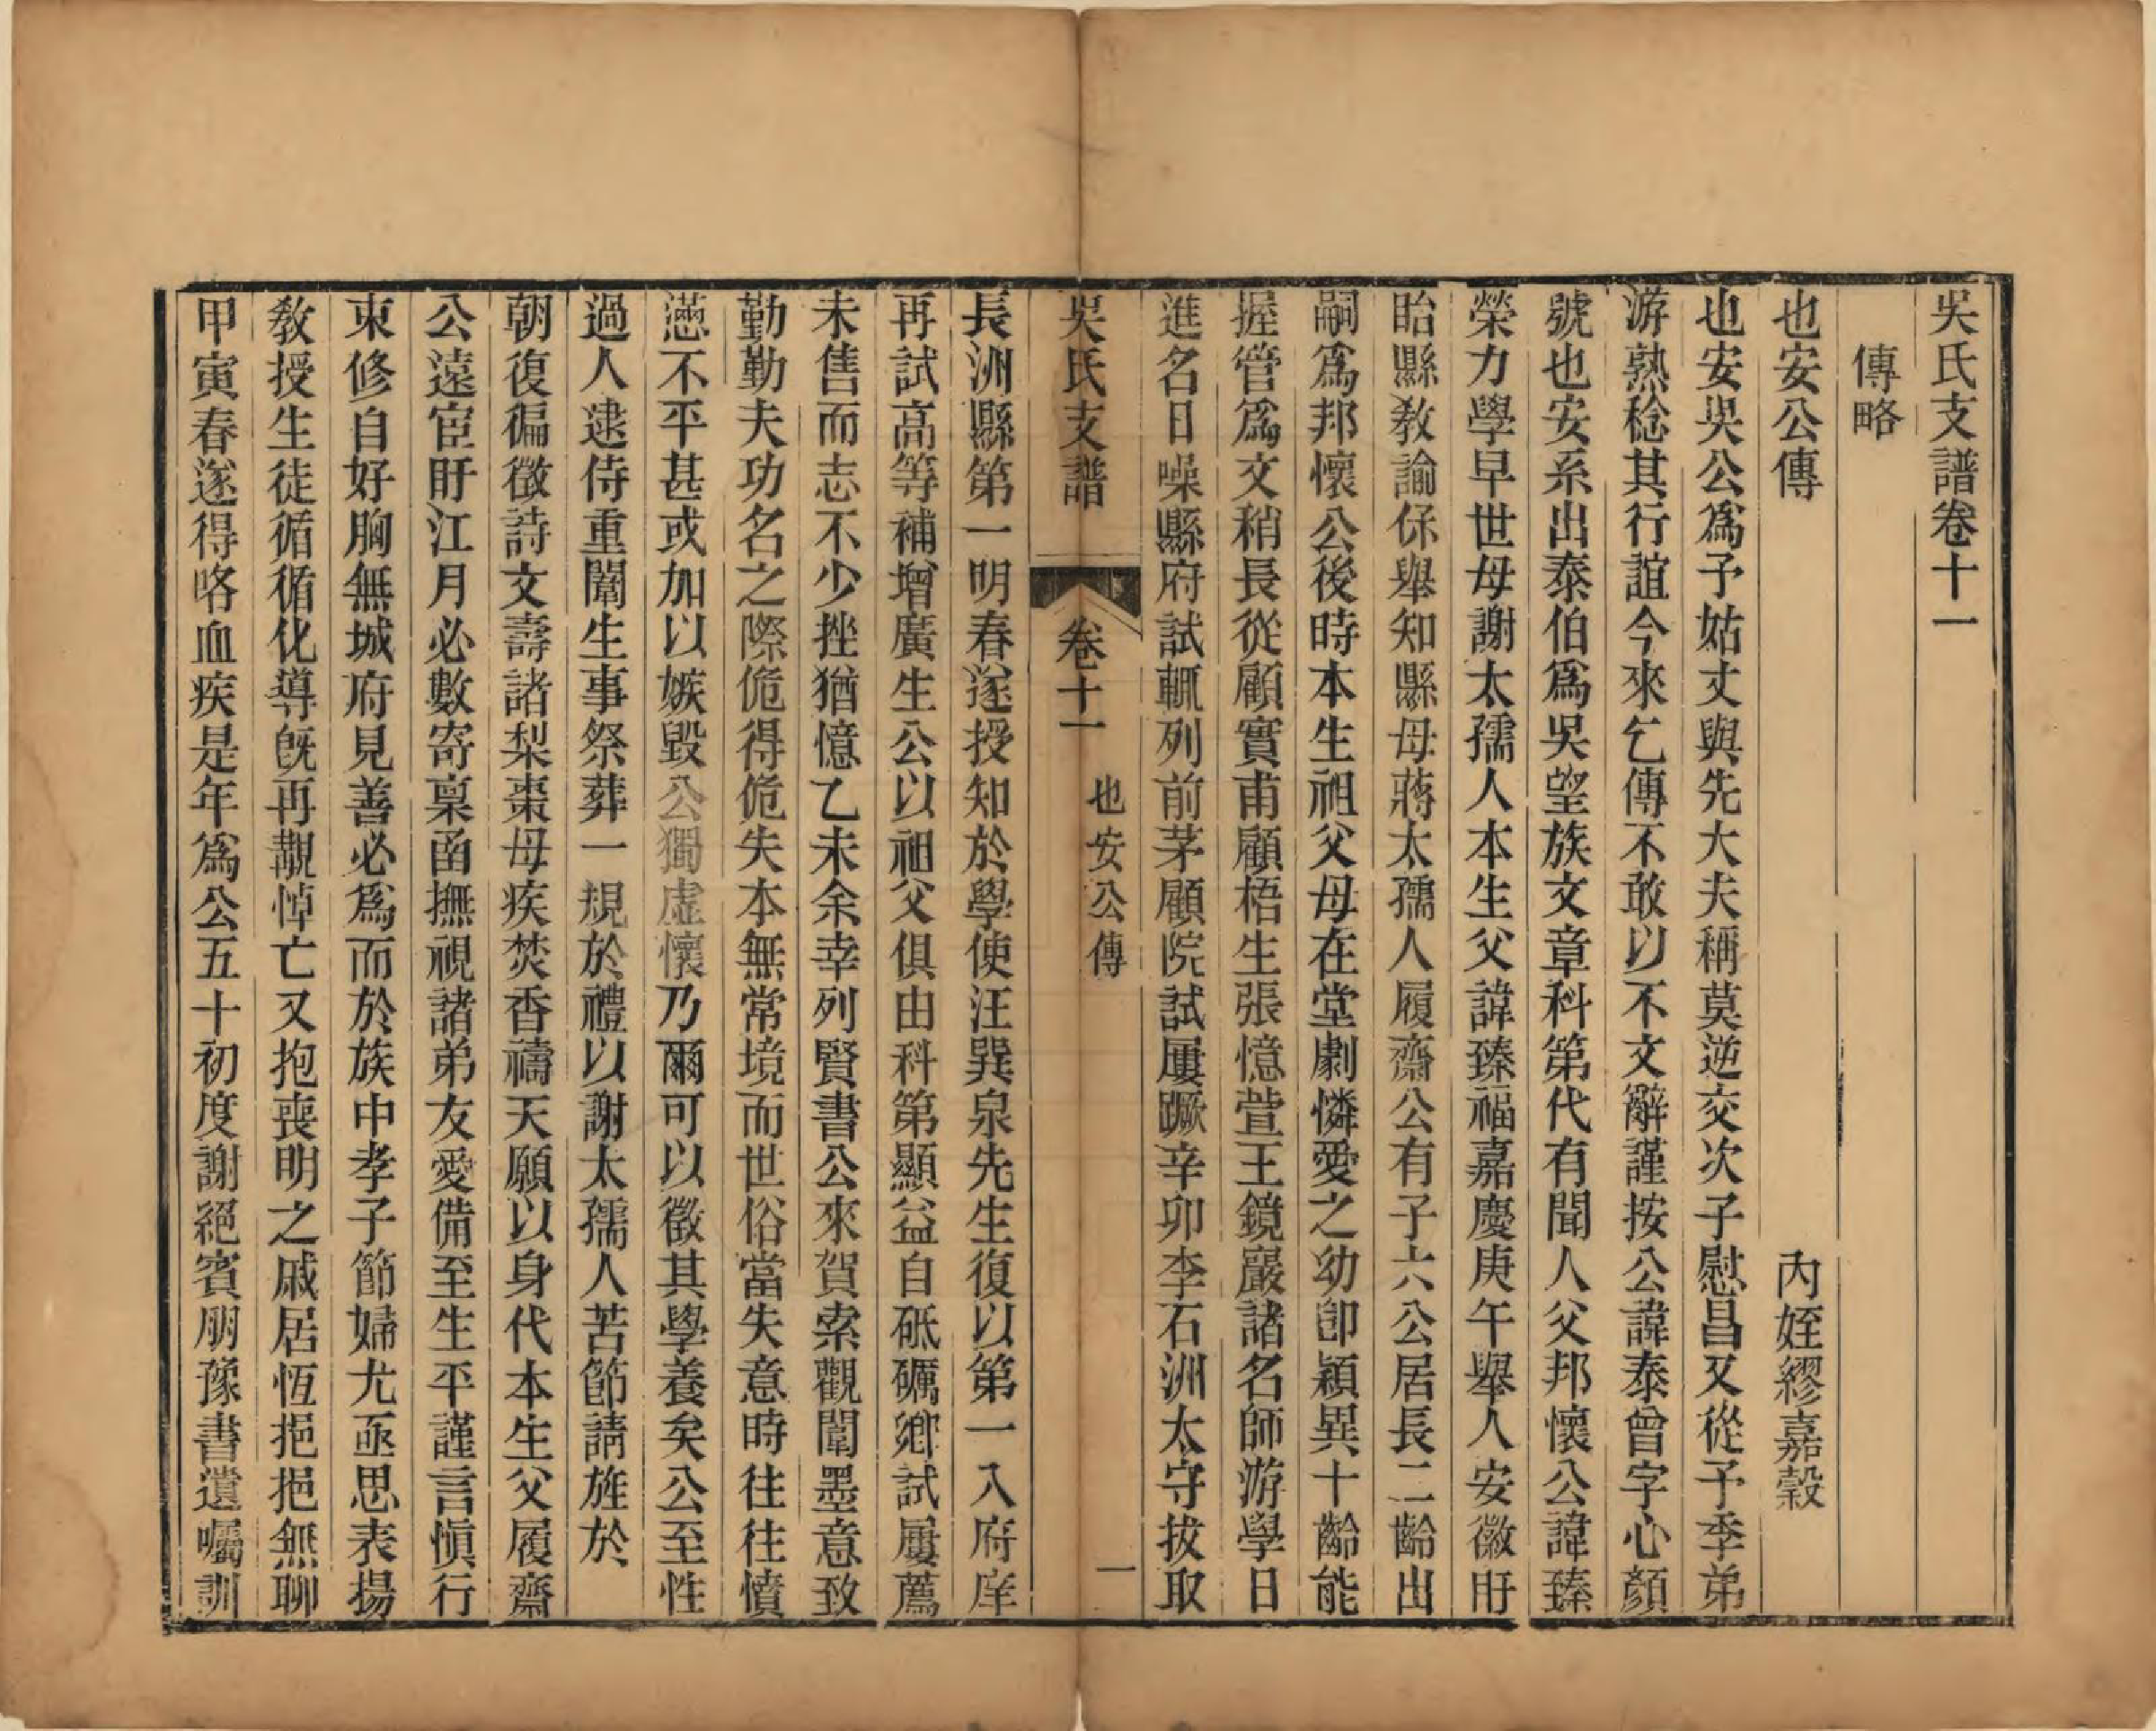 吳氏支譜卷十一
傳略
也安公傳　內姪繆嘉穀
也安吳公爲予姑丈與先大夫稱莫逆交次子慰昌又從予季弟
游熟稔其行誼今來乞傳不敢以不文辭謹按公諱泰曾字心顏
號也安系出泰伯爲吳望族文章科第代有聞人父邦懷公諱臻
榮力學早世母謝太孺人本生父諱臻福嘉慶庚午舉人安徽盱
眙縣教諭保舉知縣母蔣太孺人履齋公有子六公居長二齡出
嗣爲邦懷公後時本生祖父母在堂劇憐愛之幼卽穎異十齡能
握管爲文稍長從顧實甫顧梧生張憶萱王鏡巖諸名師游學日
進名日噪縣府試輒列前茅顧院試屢蹶辛卯李石洲太守拔取
吳氏支譜　卷十一　也安公傳　一
長洲縣第一明春遂授知於學使汪巽泉先生復以第一入府庠
再試高等補增廣生公以祖父俱由科第顯益自砥礪鄉試屢薦
未售而志不少挫猶憶乙未余幸列賢書公來賀索觀闈墨意致
勤勤夫功名之際傀得傀失本無常境而世俗當失意時往往憤
懣不平甚或加以嫉毀公獨虛懷乃爾可以徵其學養矣公至性
過人逮侍重闈生事祭葬一規於禮以謝太孺人苦節請旌於
朝復徧徵詩文壽諸梨棗母疾焚香禱天願以身代本生父履齋
公遠宦盱江月必數寄稟函撫視諸弟友愛備至生平謹言愼行
束修自好胸無城府見善必爲而於族中孝子節婦尤亟思表揚
敎授生徒循循化導旣再覯悼亡又抱喪明之戚居恆挹挹無聊
甲寅春遂得咯血疾是年爲公五十初度謝絕賓朋豫書遺囑訓